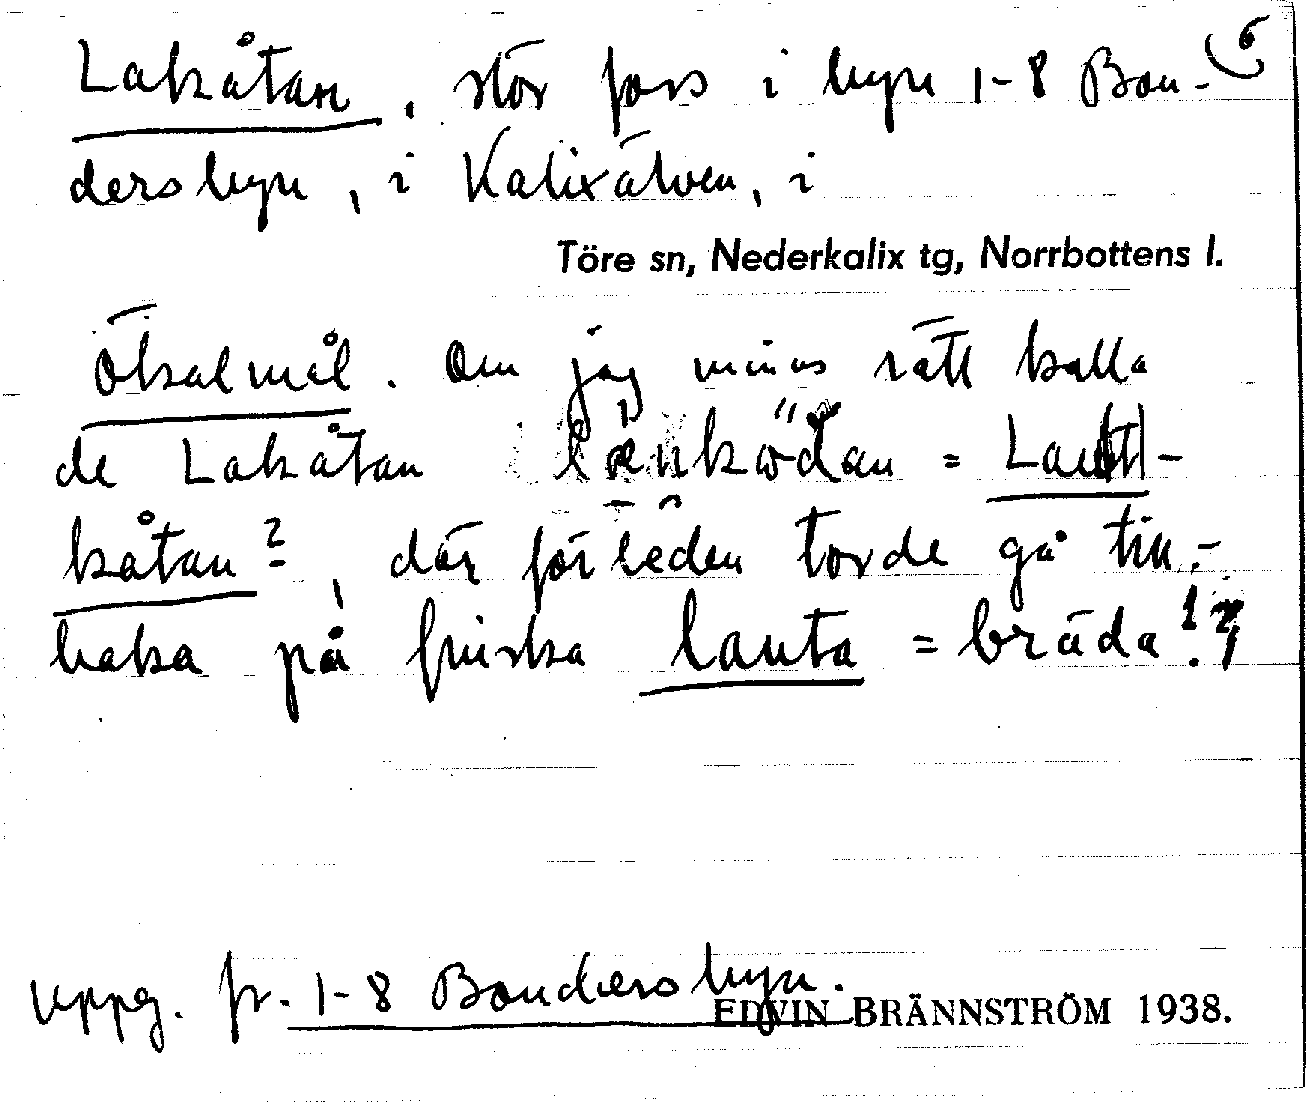 Lakåtan, stor fors i byn 1-8 Bon- 6
dersbyn, i Kalixälven, i
Töre sn, Nederkalix tg, Norrbottens l.
Ökalmål. Om jag minns rätt kalla
de Lakåtan = Laut-
kåtan?, där förleden torde gå till-
baka på finska lauta = bräda!?
Uppg. fr. 1-8 Bondersbyn.
EDVIN BRÄNNSTRÖM 1938.